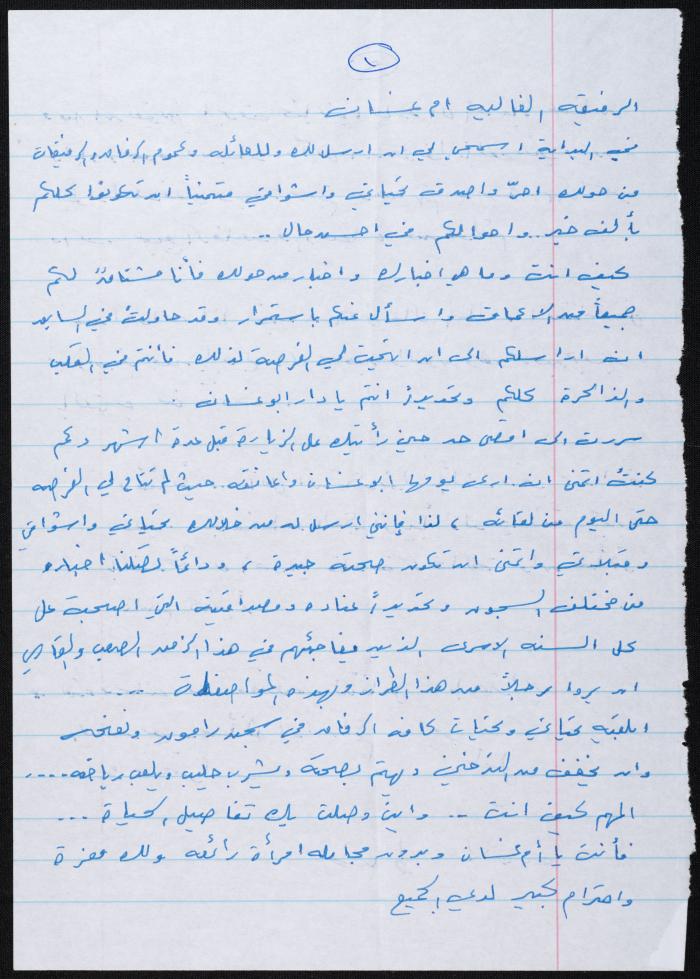 ١
الرفيقه الغاليه ام غسان
في البداية اسمحي لي ان ارسل لك وللعائله وعموم الرفاق والرفيقات
من حولك احرّ واصدق تحياتي واشواقي متمنياً ان تكونوا كلكم
بألف خير واحوالكم في احسن حال ..
كيف انت وما هي اخبارك واخبار من حولك فأنا مشتاقٌ لكم
جميعاً من الاعماق وارسأل عنكم باستمرار وقد حاولتُ في السابق
ان اراسلكم الى ان اتيحت لي الفرصة لذلك فأنتم في القلب
والذاكرة كلكم وتحديداً انتم يا دار ابو غسان .
سررت الى اقصى حد حين رأيتك على الزيارة قبل عدة اشهر وكم
كنتُ اتمنى ان ارى يومها ابو غسان واعانقه حيث لم تتاح لي الفرصه
حتى اليوم من لقائه ، لذا فإنني ارسل له من خلالك تحياتي واشواقي
وقبلاتي واتمنى ان تكون صحته جيدة ، ودائماً تصلنا اخباره
من مختلف السجون وتحديداً عناده ومصداقيته التي اصبحت على
كل السنه الاسرى الذين يفاجئهم في هذا الزمن الصعب والقاسي
ان يروا رجلاً من هذا الطراز وبهذه المواصفات ....
ابلغيه تحياتي وتحيات كافه الرفاق في سجن رامون ونفحه
وان يخفف من التدخين ويهتم بصحته ويشرب حليب ويلعب رياضه ....
المهم كيف انت .. واين وصلت بك تفاصيل الحياة ...
فأنت يا أم غسان وبدون مجامله امرأة رائعه ولك معزة
واحترام كبير لدى الجميع